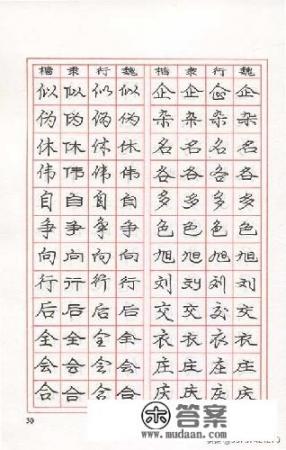 楷 隶 行 魏 楷 隶 行 魏
似 似 似 似 企 企 企 企
伪 伪 伪 伪 杂 杂 杂 杂
休 休 休 休 名 名 名 名
伟 伟 伟 伟 各 各 各 各
自 自 自 自 多 多 多 多
争 争 争 争 色 色 色 色
向 向 向 向 旭 旭 旭 旭
行 行 行 行 刘 刘 刘 刘
后 后 后 后 交 交 交 交
全 全 全 全 衣 衣 衣 衣
会 会 会 会 庄 庄 庄 庄
合 合 合 合 庆 庆 庆 庆
30
答案
www.mudaan.com